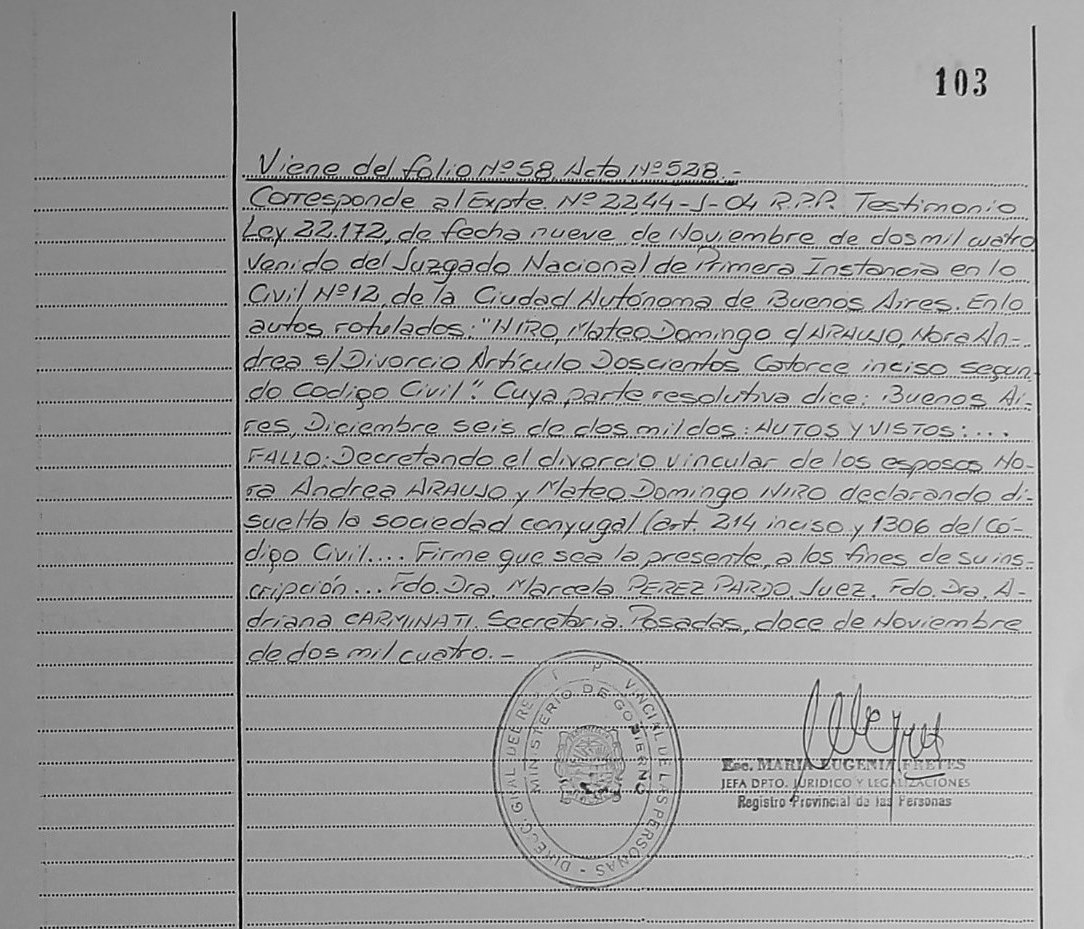 103
Viene del folio Nº 58, Acta Nº 528.-
Corresponde al Expte. Nº 2244-J-04 R.P.P. Testimonio
Ley 22.172, de fecha nueve de Noviembre de dos mil cuatro
venido del Juzgado Nacional de Primera Instancia en lo
Civil Nº 12, de la Ciudad Autónoma de Buenos Aires. En lo
autos rotulados: "NIRO, Mateo Domingo c/ ARAUJO, Nora An-
drea s/ Divorcio Artículo Doscientos Catorce inciso segun
do Codigo Civil". Cuya parte resolutiva dice: Buenos Ai-
res, Diciembre seis de dos mil dos: AUTOS Y VISTOS: ...
FALLO: Decretando el divorcio vincular de los esposos No-
ra Andrea ARAUJO y Mateo Domingo NIRO declarando di-
suelta la sociedad conyugal (art. 214 inciso y 1306 del Có-
digo Civil.... Firme que sea la presente, a los fines de su ins-
cripción ... Fdo. Dra. Marcela PEREZ PARDO. Juez. Fdo. Dra. A-
driana CARMINATI. Secretaria. Posadas, doce de Noviembre
de dos mil cuatro.-
MINISTERIO DE GOBIERNO
VINCIAL DE LAS PERSONAS -
Esc. MARIA EUGENIA FREYES
JEFA DPTO. JURIDICO Y LEGALIZACIONES
Registro Provincial de las Personas